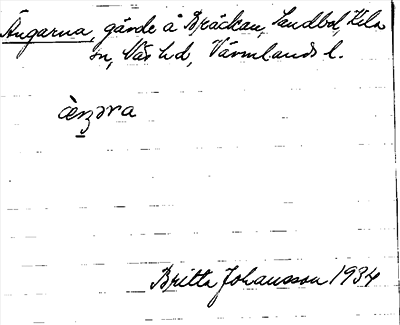 Ängarna, gärde å Bräckan, Sandbol, Kila
sn, Näs hd, Värmlands l.
Britta Johansson 1934